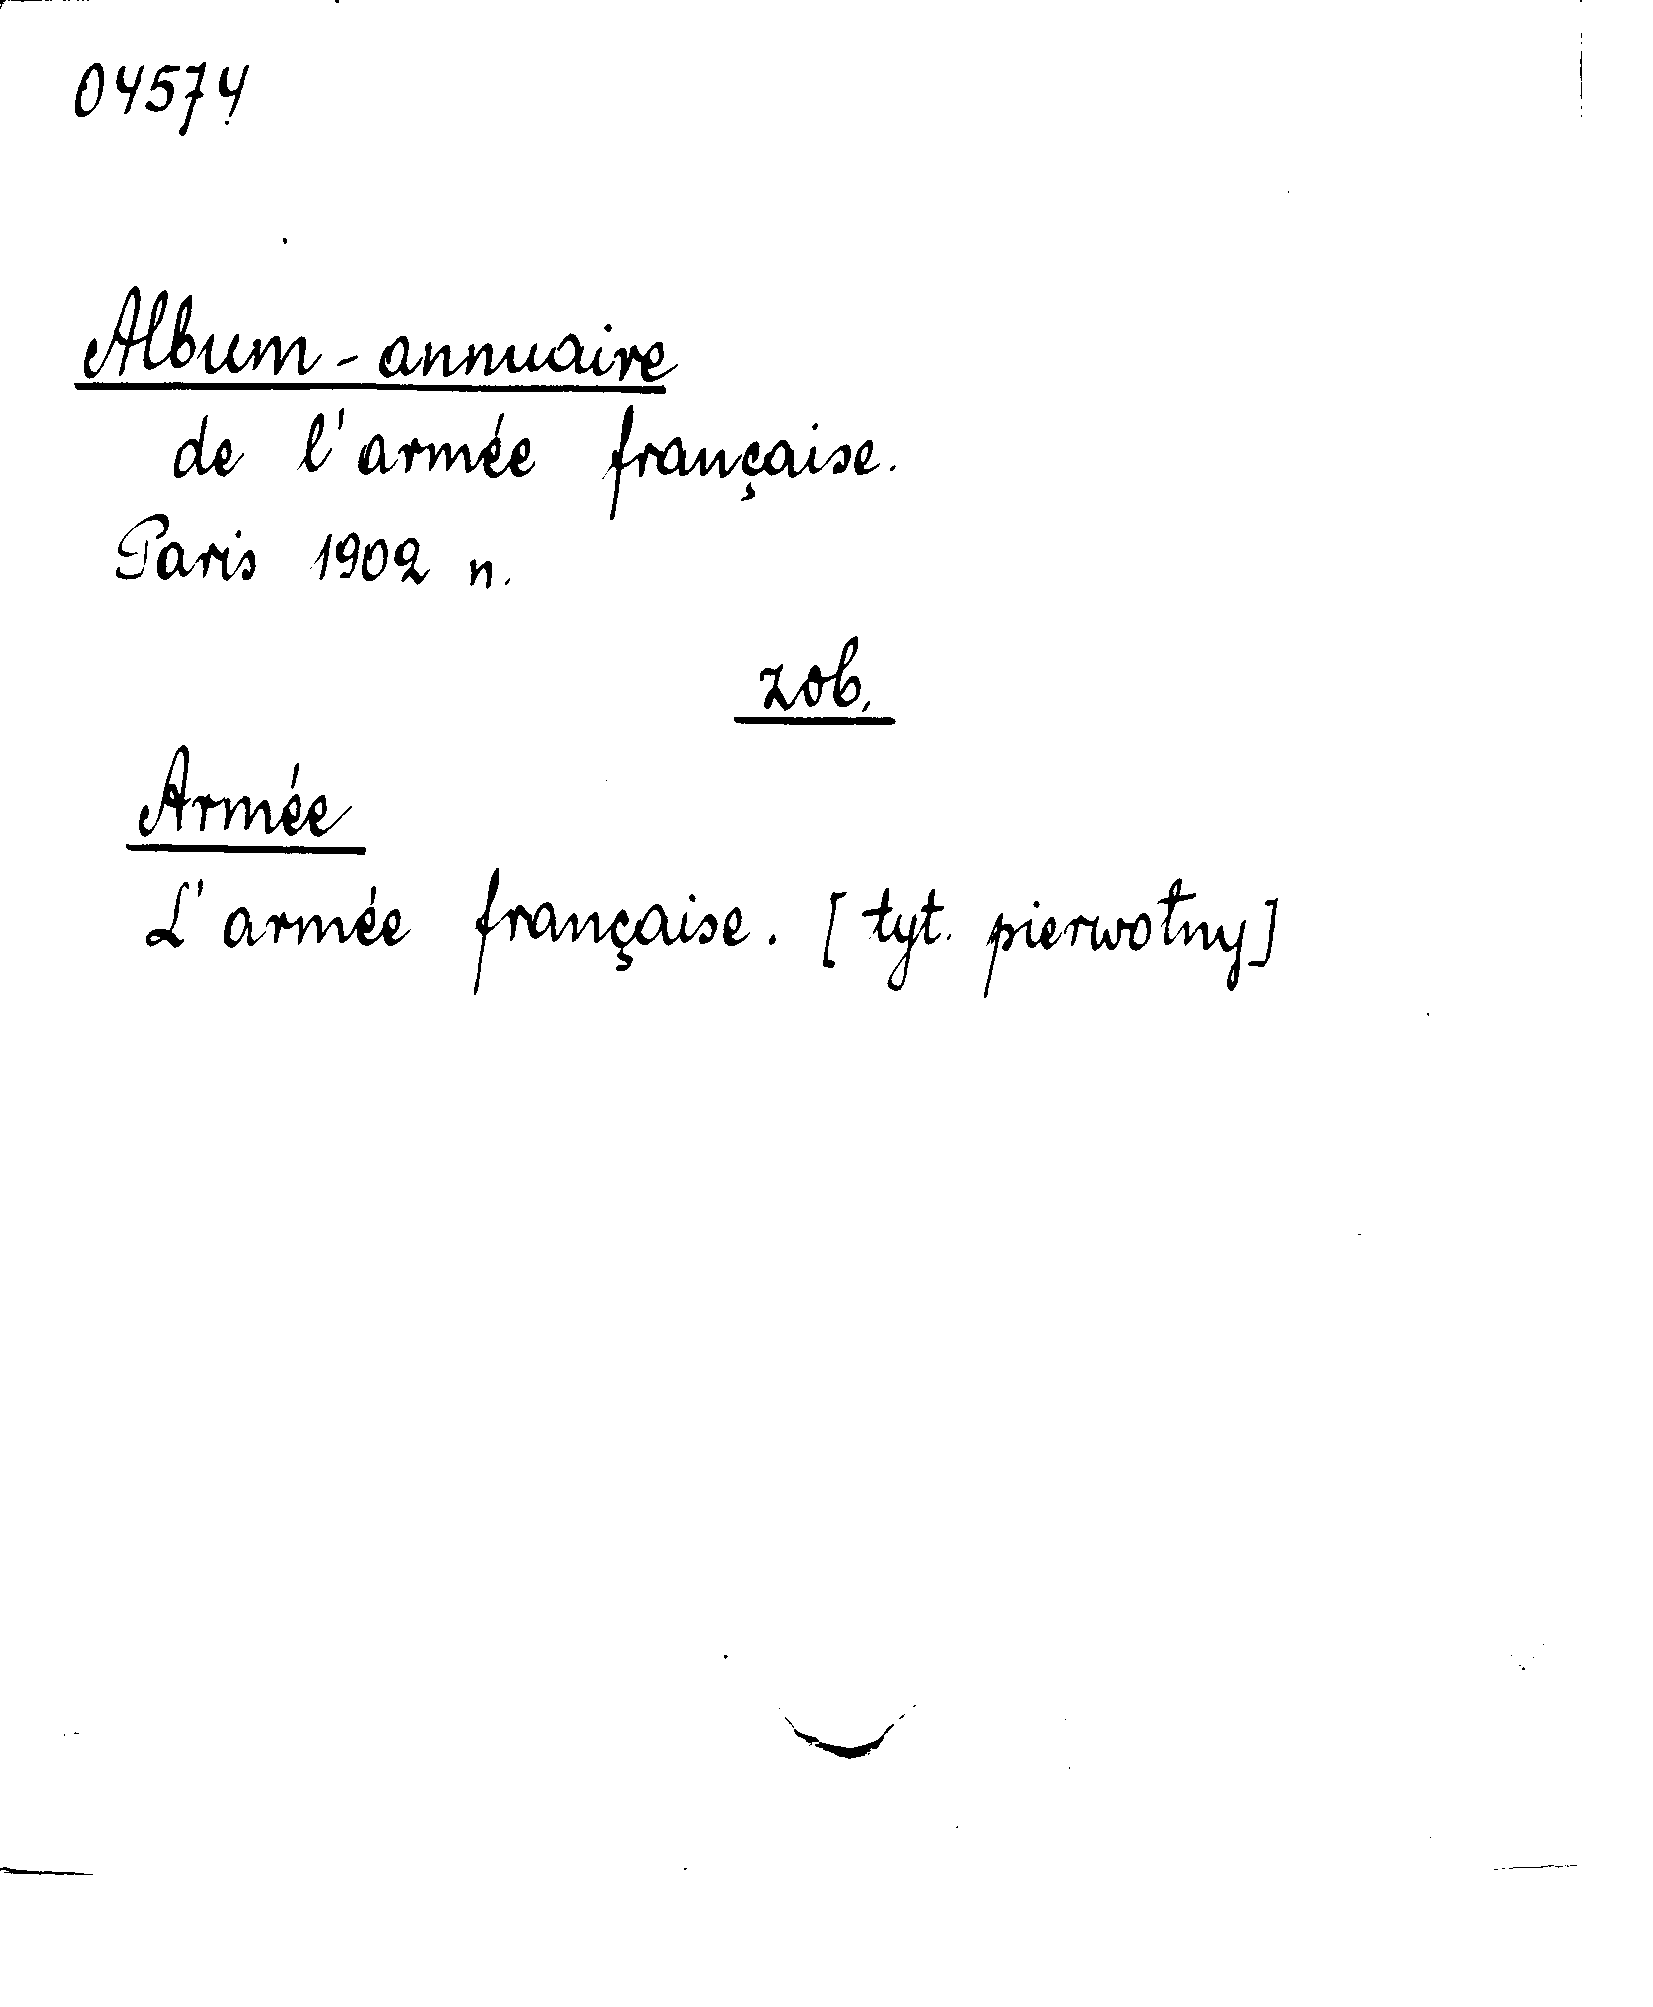 04574
Album-annuaire
de l'armée française.
Paris 1902 n.
zob.
Armée
L'armée française. [tyt. pierwotny]